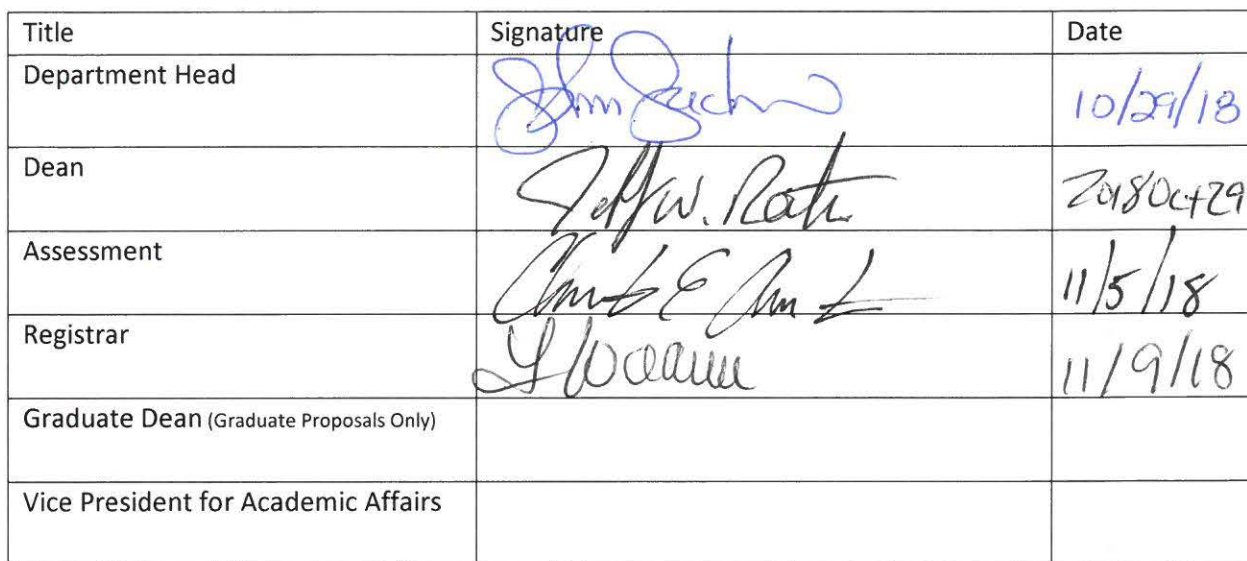 Title Signature Date
Department Head 10/29/18
Dean Jeff W. 2018Oct29
Assessment E 11/5/18
Registrar 11/9/18
Graduate Dean (Graduate Proposals Only)
Vice President for Academic Affairs